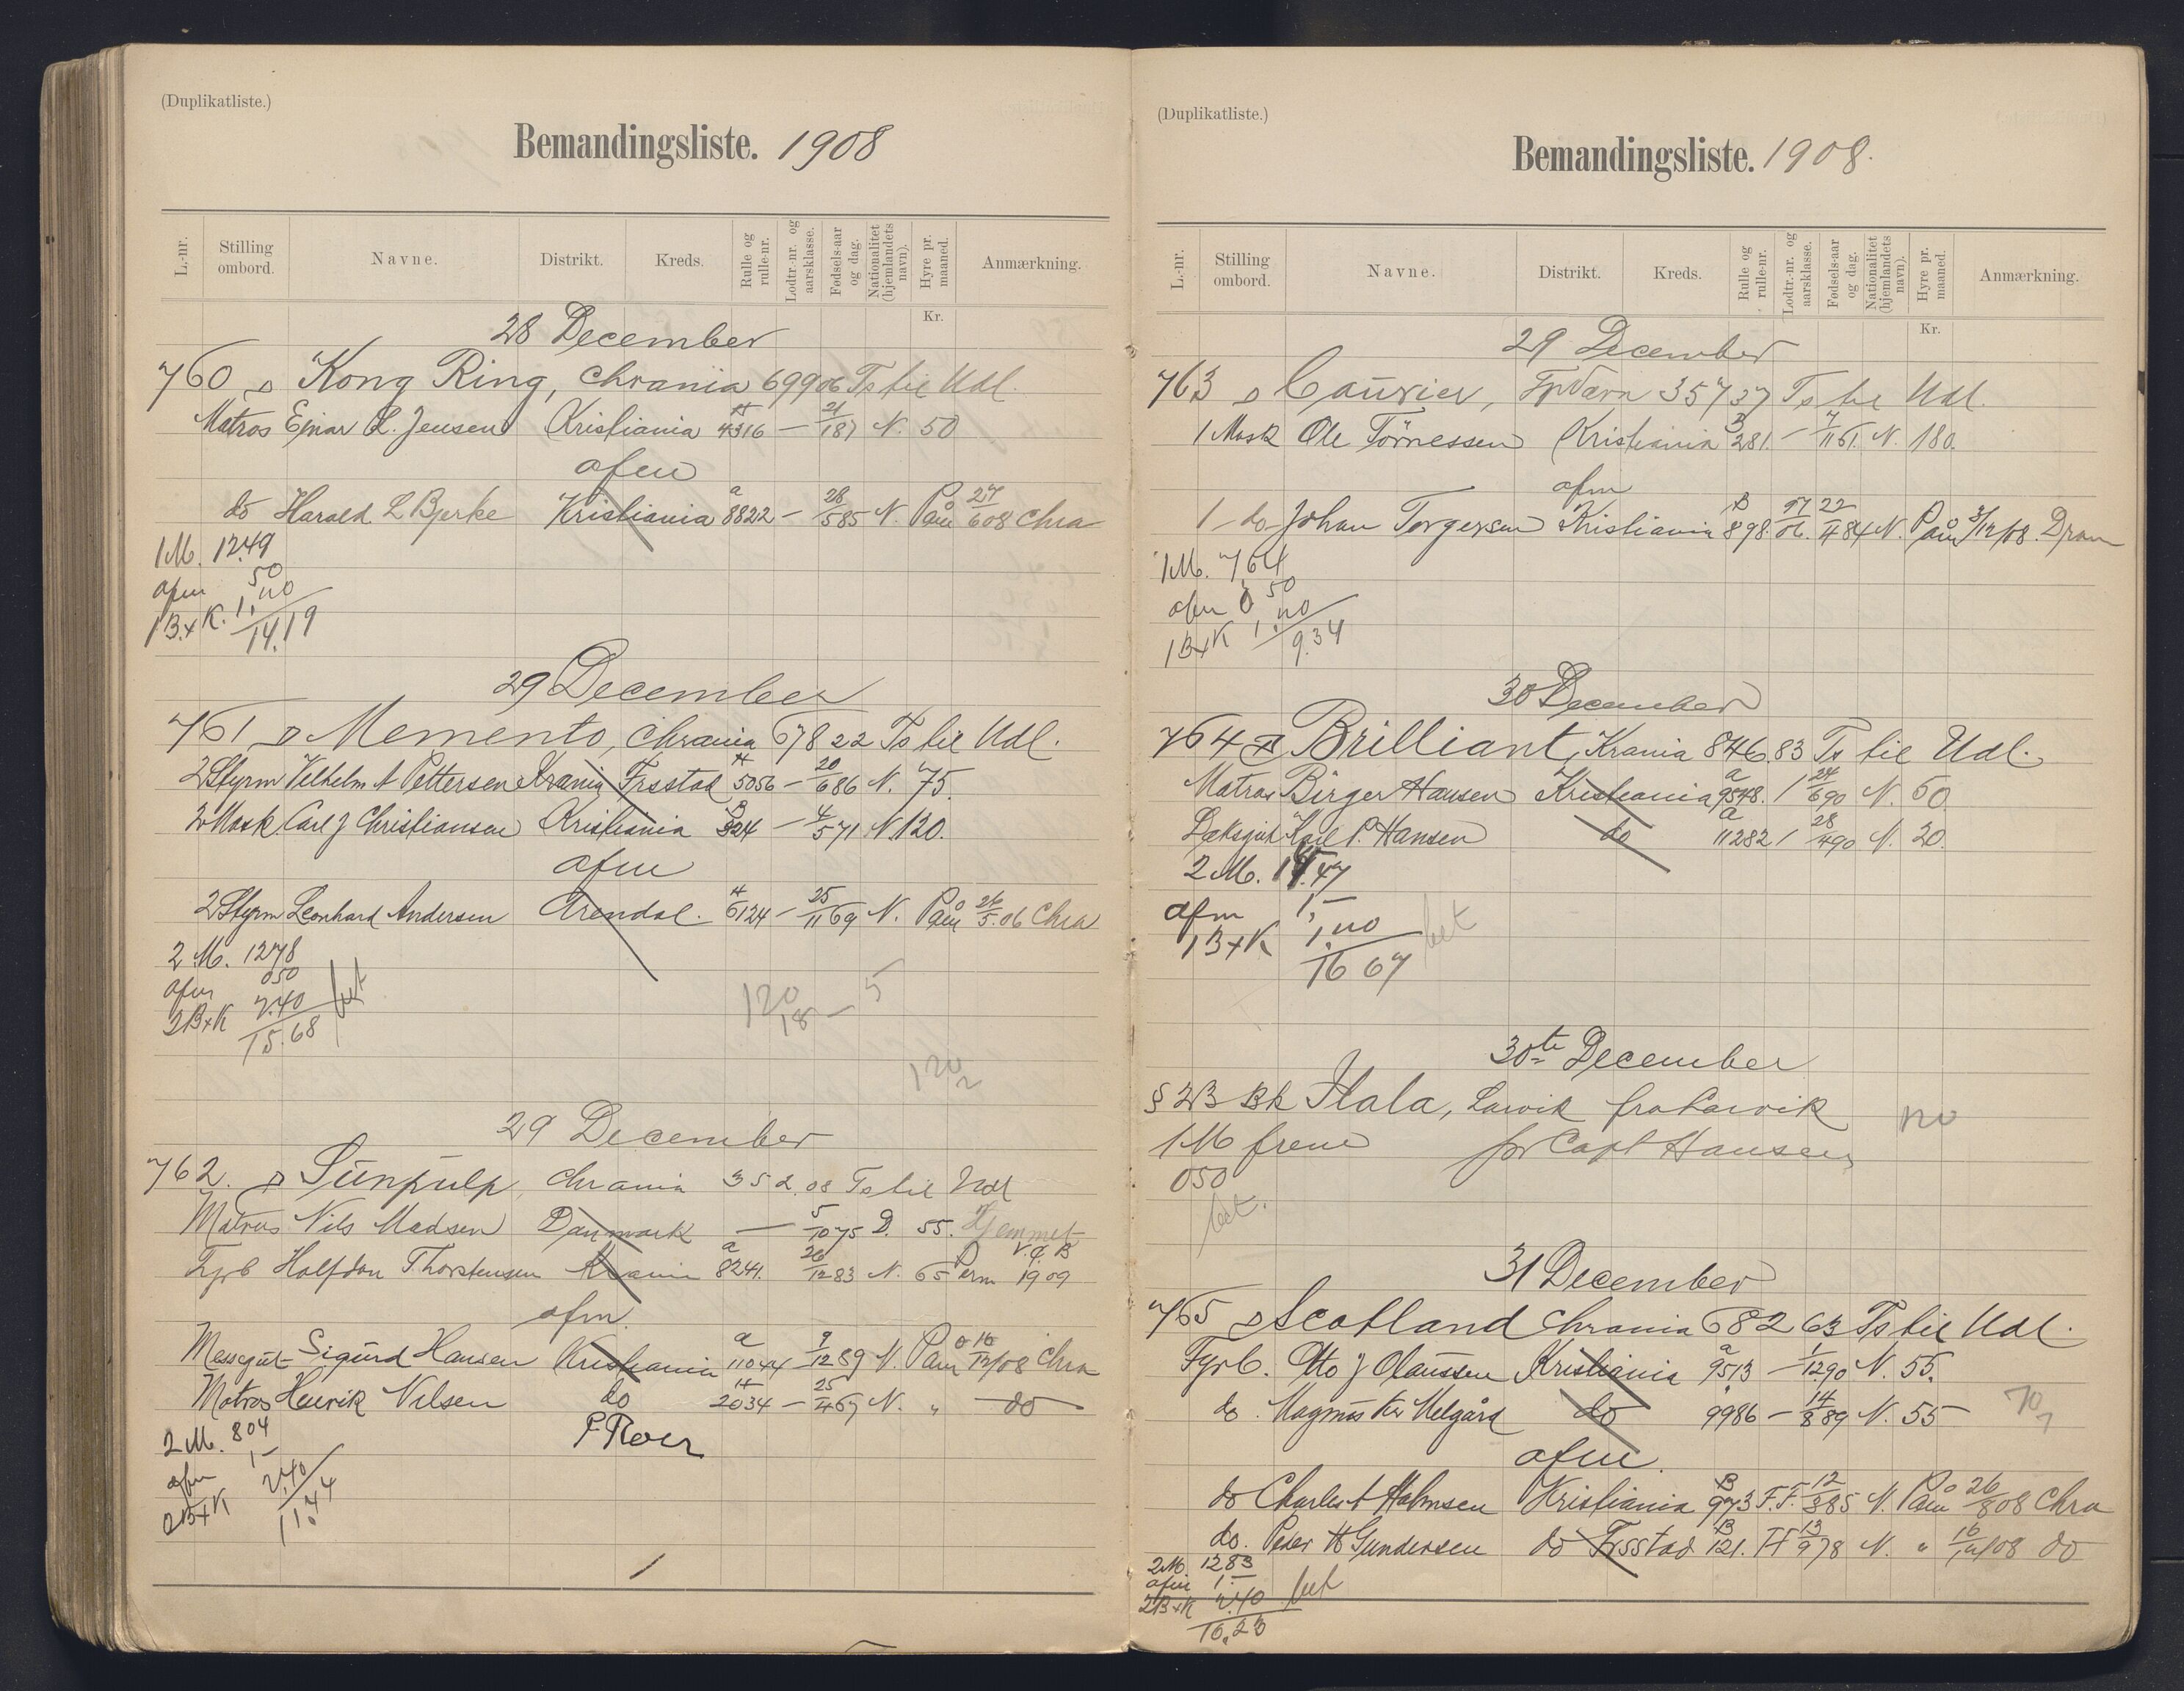 (Duplikatliste.)
Bemandingsliste. 1908
L.-nr. Stilling ombord. Navne. Distrikt. Kreds. Rulle og rulle-nr. Lodtr.-nr. og aarsklasse. Fødsels-aar og dag. Nationalitet (hjemlandets navn). Hyre pr. maaned. Anmærkning.
Kr.
28 December
760 D Kong Ring, Chrania 699 06 Ts til Udl.
Matros Ejnar L. Jensen Kristiania 4316 — 21/1 87 N. 50
afm
do Harald L Bjerke Kristiania a 8822 — 28/5 85 N. Påm 27/6 08 Chra
1 M. 12.49
afm 50
1 B+K. 1,20
14.19
29 December
761 D Memento, Chrania 678 22 Ts til Udl.
2 Styrm Vilhelm A Pettersen Krania Frsstad 5056 — 20/6 86 N. 75.
2 Mask Carl J Christiansen Kristiania B 324 — 4/5 71 N. 120.
afm
2 Styrm Leonhard Andersen Arendal. 6124 — 25/11 69 N. Påm 26/5. 06 Chra
2 M. 1278
afm 050
2 B+K 2.40
15.68
120
18 — 5
120
2
29 December
762. D Sunpulp, Chrania 352.08 Ts til Udl
Matros Nils Madsen Danmark — 5/10 75 D. 55. Hjemmet
Fyrb Halfdan Thorstensen Krania a 8241. 26/12 83 N. 65 Perm V.Ø.B 1909
afm.
Messegut Sigurd Hansen Kristiania a 11044 — 9/12 89 N. Påm 16/12/08 Chra
Matros Henrik Nilsen do 2034 — 25/4 69 N. " do
2 M. 804
afm 1 —
2 B+K 2.40
11.44
(Duplikatliste.)
Bemandingsliste. 1908.
L.-nr. Stilling ombord. Navne. Distrikt. Kreds. Rulle og rulle-nr. Lodtr.-nr. og aarsklasse. Fødsels-aar og dag. Nationalitet (hjemlandets navn). Hyre pr. maaned. Anmærkning.
Kr.
29 December
763 D Courier, 357 37 Ts til Udl.
1 Mask Ole Törnessen Kristiania B 281. — 7/11 61. N. 180.
afm
1 do Johan Torgersen Kristiania B 898. 97/06. 22/11 84 N. Påm 3/12/08. Dram
1 M. 764
afm 0 50
1 B+K 1.20
9.34
30 December
764 D Brilliant, Krania 846.83 Ts til Udl.
Matros Birger Hansen Kristiania a 9548. 1 24/6 90 N. 60.
Dæksgut Karl P. Hansen do a 11282 1 28/4 90 N. 20.
2 M. 14.47
afm 1,—
1 B+K 1.20
16 67
30te December
§ 2B Bk Itala, Larvik fra Larvik
1 M frem for Capt Hansen
050
bet.
31 December
765 D Scotland Chrania 682 63 Ts til Udl.
Fyrb. Otto J Olaussen Kristiania a 9513 — 1/12 90 N. 55.
do. Magnus Kr Melgård do 9986 — 14/8 89 N. 55
70
7
afm.
do Charles A Halmsen Kristiania B 973 F.F. 12/3 85 N. Påm 26/8 08 Chra
do. Peder H Gundersen do Frsstad B 121. FF 13/9 78 N. " 16/12/08 do
2 M. 12 83
afm 1.—
2 B+K 2.40 bet
16.23